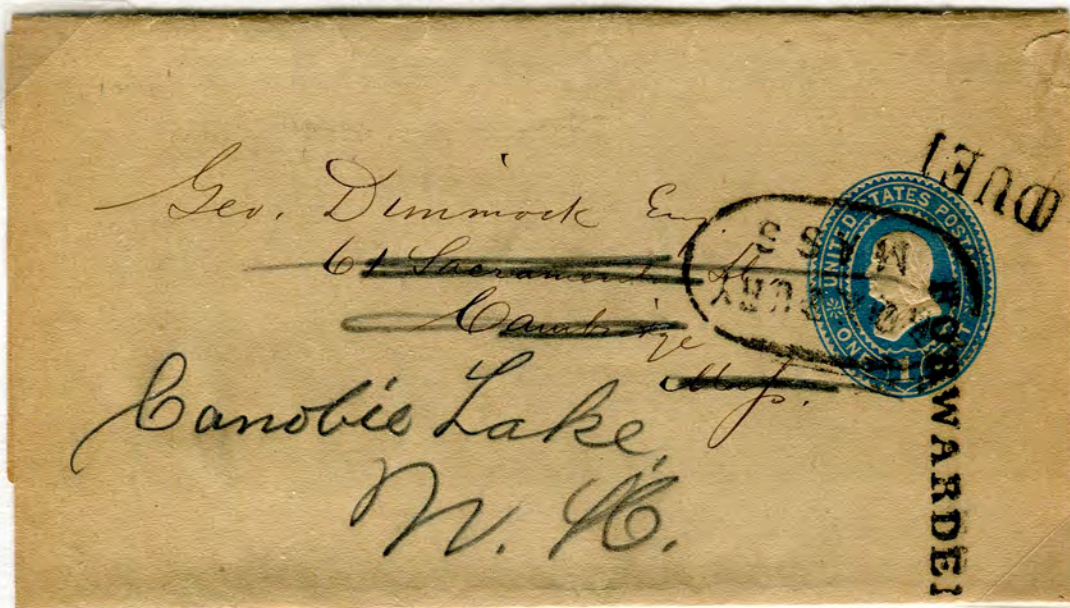 Geo. Dimmock Esq
61 Sacramento St
Cambridge
Mass.
Canobie Lake,
N. H.
DUE 1
UNITED STATES POSTAGE
ONE CENT
1
MASS
FORWARDED